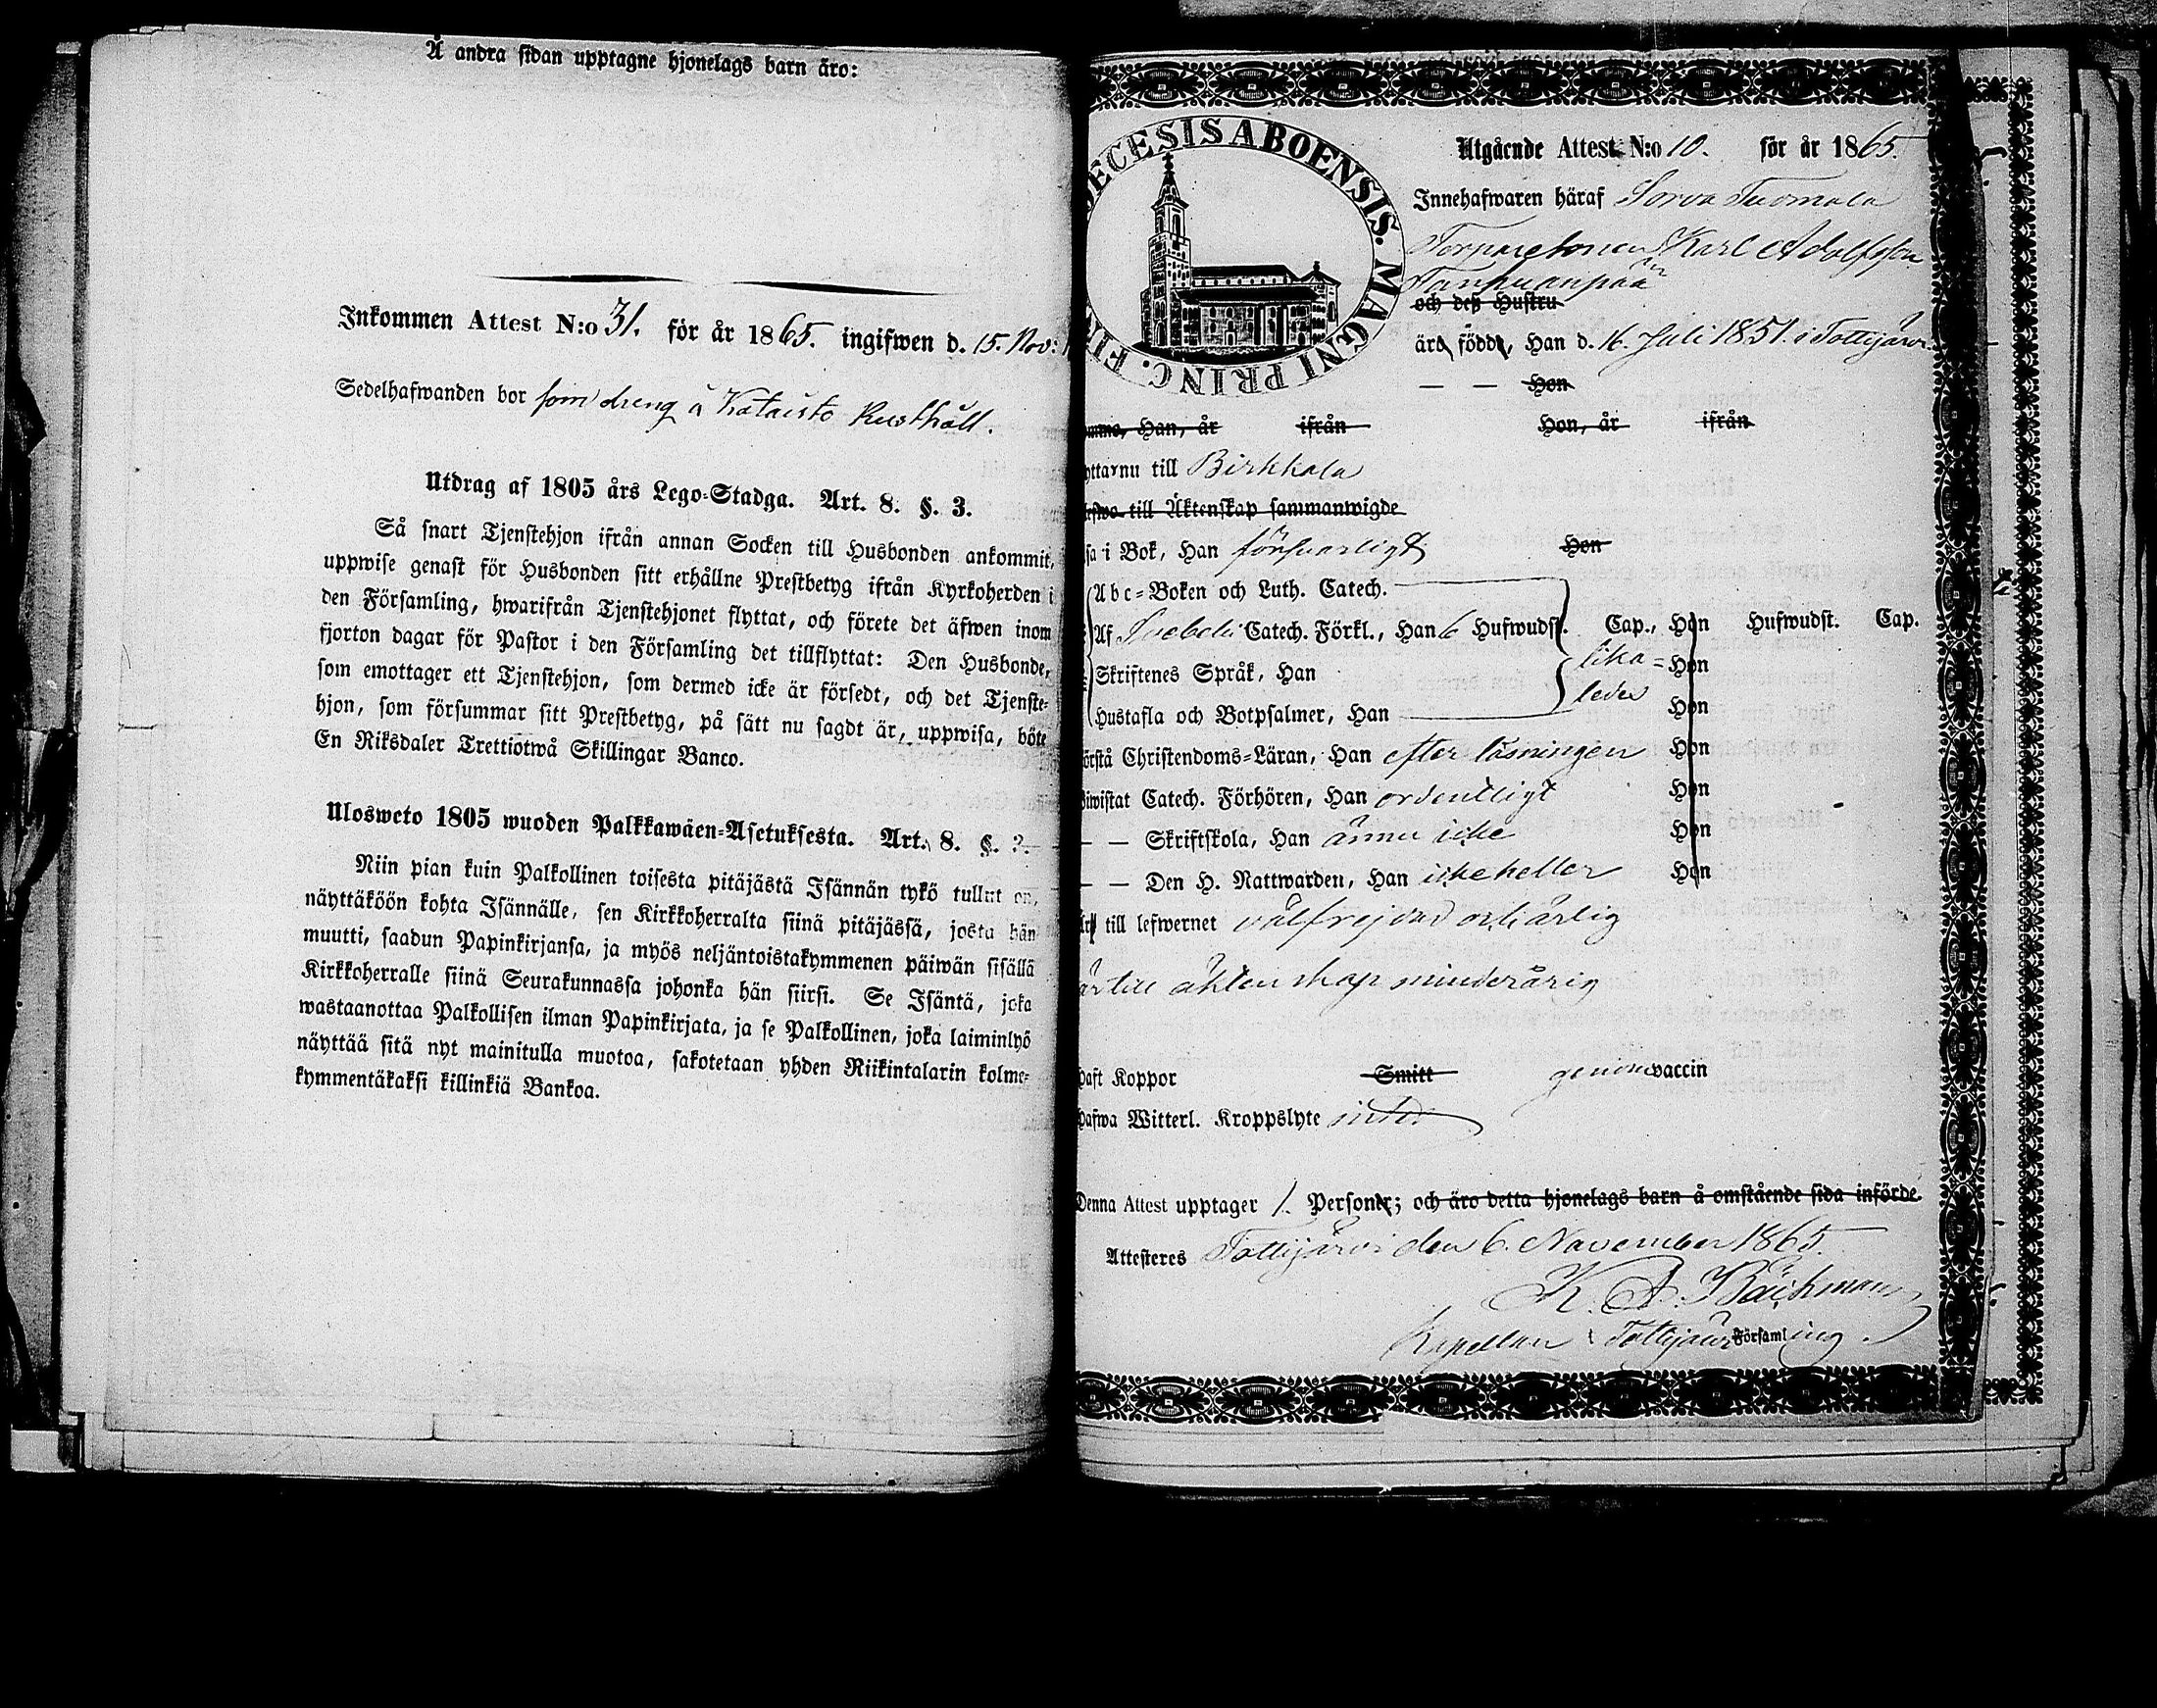 Å andra sidan upptagne hjonelags barn äro:
Inkommen Attest N:o 31. för år 1865. ingifwen d. 15. Nov:
Sedelhafwanden bor som dreng å Kataisto Rusthåll.
Utdrag af 1805 års Lego-Stadga. Art. 8. §. 3.
Så snart Tjenstehjon ifrån annan Socken till Husbonden ankommit,
uppwise genast för Husbonden sitt erhållne Prestbetyg ifrån Kyrkoherden i
den Församling, hwarifrån Tjenstehjonet flyttat, och förete det äfwen inom
fjorton dagar för Pastor i den Församling det tillflyttat: Den Husbonde,
som emottager ett Tjenstehjon, som dermed icke är försedt, och det Tjenste-
hjon, som försummar sitt Prestbetyg, på sätt nu sagdt är, uppwisa, böte
En Riksdaler Trettiotwå Skillingar Banco.
Ulosweto 1805 wuoden Palkkawäen-Asetuksesta. Art. 8. §.
Niin pian kuin Palkollinen toisesta pitäjästä Isännän tykö tullut on,
näyttäköön kohta Isännälle, sen Kirkkoherralta siinä pitäjässä, josta hän
muutti, saadun Papinkirjansa, ja myös neljäntoistakymmenen päiwän sisällä
Kirkkoherralle siinä Seurakunnassa johonka hän siirsi. Se Isäntä, joka
wastaanottaa Palkollisen ilman Papinkirjata, ja se Palkollinen, joka laiminlyö
näyttää sitä nyt mainitulla muotoa, sakotetaan yhden Riikintalarin kolme-
kymmentäkaksi killinkiä Bankoa.
ECESIS ABOENSIS. MAGNI PRINC. FI
Utgående Attest N:o 10. för år 1865.
Innehafwaren häraf Sorva Tuomala
Torparesonen Karl Adolfsson
Tanhuanpää
och deß Hustru
äro födde, Han d. 16. Juli 1851. i Tottijärvi
— — Hon
Han, år ifrån Hon, år ifrån
yttarnu till Birkkala
till Äktenskap sammanwigde
sa i Bok, Han försvarligt Hon
Abc-Boken och Luth. Catech.
Af Svebelii Catech. Förkl., Han 6 Hufwudst. Cap., Hon Hufwudst. Cap.
Skriftenes Språk, Han lika- Hon
Hustafla och Botpsalmer, Han ledes Hon
örstå Christendoms-Läran, Han efter läsningen Hon
iwistat Catech. Förhören, Han ordentligt Hon
— — Skriftskola, Han ännu icke Hon
— — Den H. Nattwarden, Han icke heller Hon
till lefwernet välfrejdad och ärlig
är till äktenskap minderårig
haft Koppor Smitt genom vaccin
hafwa Witterl. Kroppslyte intet
Denna Attest upptager 1. Personer; och äro detta hjonelags barn å omstående sida införde.
Attesteres Tottijärvi den 6. November 1865.
K. A. Bäckman
Kapellan i Tottijärvi Församling.